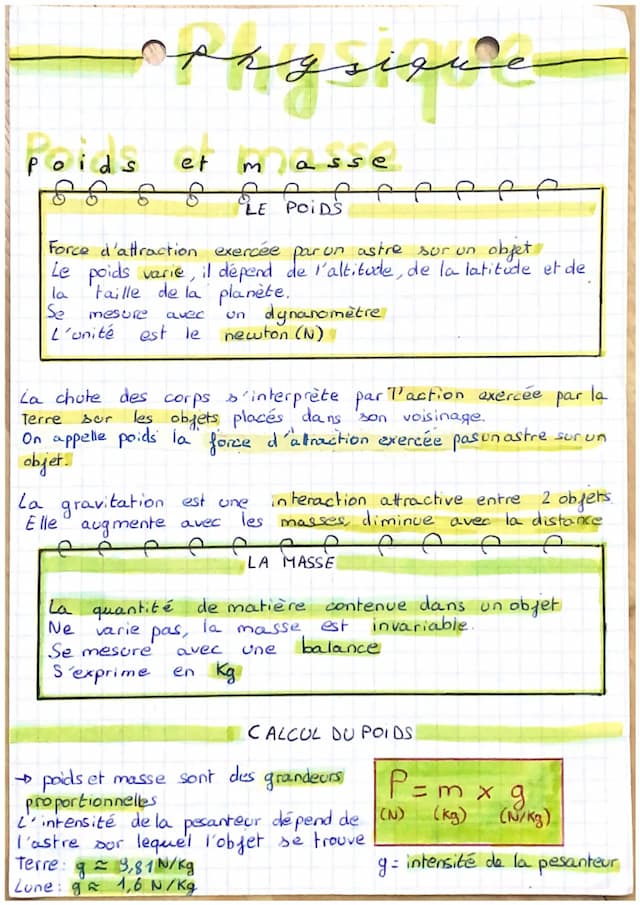 Physique
Physique
Poids et masse
Poids et masse
LE POIDS
Force d'attraction exercée par un astre sur un objet
Le poids varie, il dépend de l'altitude, de la latitude et de
la taille de la planète.
Se mesure avec un dynanomètre
L'unité est le newton (N)
La chute des corps s'interprète par l'action exercée par la
Terre sur les objets placés dans son voisinage.
On appelle poids la force d'attraction exercée pas un astre sur un
objet.
La gravitation est une interaction attractive entre 2 objets
Elle augmente avec les masses, diminue avec la distance
LA MASSE
La quantité de matière contenue dans un objet
Ne varie pas, la masse est invariable.
Se mesure avec une balance
S'exprime en Kg
CALCUL DU POIDS
→ poids et masse sont des grandeurs
proportionnelles
L'intensité de la pesanteur dépend de
l'astre sur lequel l'objet se trouve
Terre : g ≈ 9,81 N/Kg
Lune : g ≈ 1,6 N/Kg
P = m x g
(N) (Kg) (N/Kg)
g = intensité de la pesanteur